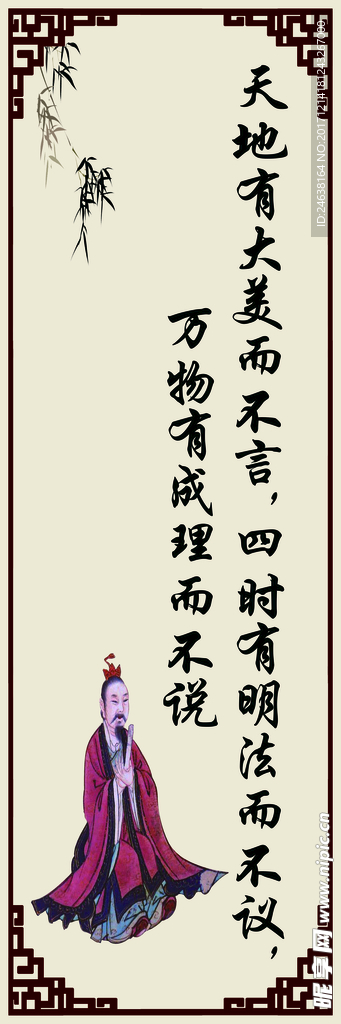 天地有大美而不言，四时有明法而不议，
万物有成理而不说
ID:24638164 NO:20171214181243267000
昵享网 www.nipic.cn